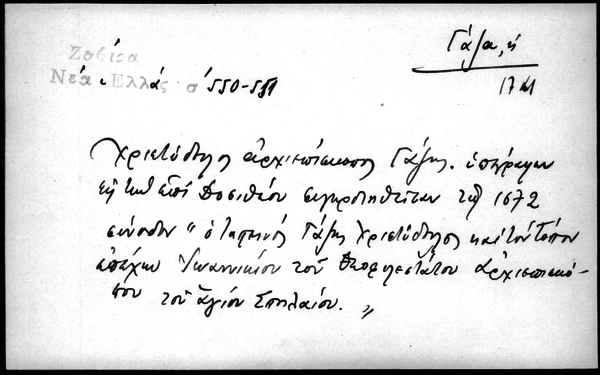 Γάζα, ἡ
Ζαβίρα
Νέα Ἑλλάς σ 550-551
Χριστόδουλος ἀρχιεπίσκοπος Γάζης. ὑπέγραψεν
εἰς τὴν ἐπὶ Δοσιθέου συγκροτηθεῖσαν τῷ 1672
σύνοδον "ὁ ταπεινός Γάζης Χριστόδουλος καὶ τὸν τόπον
ἐπέχων Ἰωαννικίου τοῦ θεοφιλεστάτου ἀρχιεπισκό-
που τοῦ ἁγίου Σπηλαίου. "